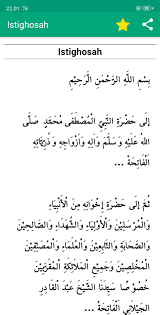 22.01
Istighosah
Istighosah
بِسْمِ اللهِ الرَّحْمَنِ الرَّحِيْمِ
إِلَى حَضْرَةِ النَّبِيِّ الْمُصْطَفَى مُحَمَّدٍ صَلَّى
اللهُ عَلَيْهِ وَسَلَّمَ وَآلِهِ وَأَزْوَاجِهِ وَذُرِّيَّاتِهِ
الْفَاتِحَةُ ...
ثُمَّ إِلَى حَضْرَةِ إِخْوَانِهِ مِنَ الْأَنْبِيَاءِ
وَالْمُرْسَلِيْنَ وَالْأَوْلِيَاءِ وَالشُّهَدَاءِ وَالصَّالِحِيْنَ
وَالصَّحَابَةِ وَالتَّابِعِيْنَ وَالْعُلَمَاءِ وَالْمُصَنِّفِيْنَ
الْمُخْلِصِيْنَ وَجَمِيْعِ الْمَلَائِكَةِ الْمُقَرَّبِيْنَ
خُصُوْصًا سَيِّدِنَا الشَّيْخِ عَبْدِ الْقَادِرِ
الْجَيْلَانِي الْفَاتِحَةُ ...